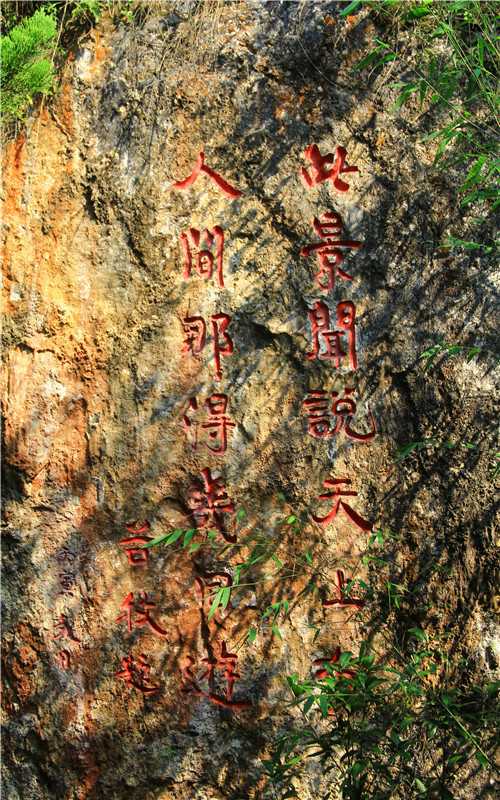 此景聞說天上有
人間那得幾回遊
題